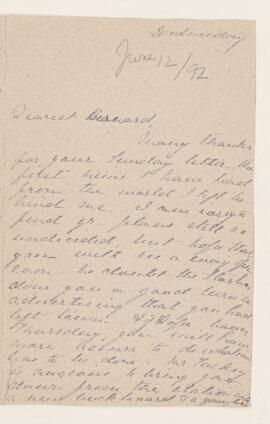 Wednesday
June 12/92
Dearest Bernard
Many thanks
for your Sunday letter, the
first news I have had
from the world I left be
hind me. I was sorry to
find yr. plans still so
undecided, but hope that
you will see a way
soon. No doubt the Star has
done you a good turn in
advertising that you have
left town. I hope,
Thursday you will have
more leisure to do what
has to be done.
is anxious to bring you
down from the station in
a new